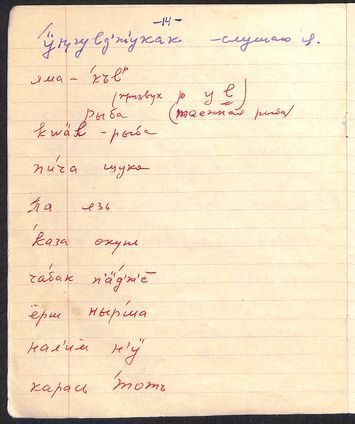 -14-
ӱңгувд'ж'укак - слушаю я.
яма - 'къв"
(призвук р у в
рыба (таёжная рыба)
kwäл - рыба
пи́ча щука
па язь
ќаза окунь
чабак п'ӓ́дж'ё
ёрш ныр́ма
налим н'ӱ
карась тоть